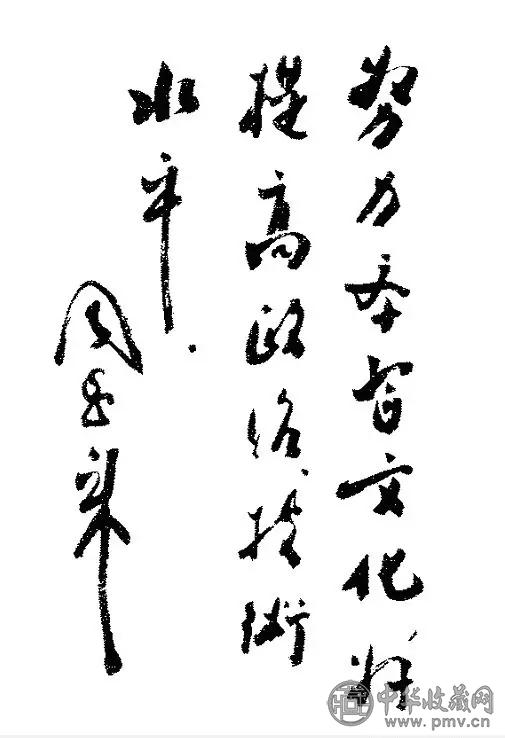 努力学習文化
提高政治技術
水平.
周恩来
中华收藏网
www.pmv.cn